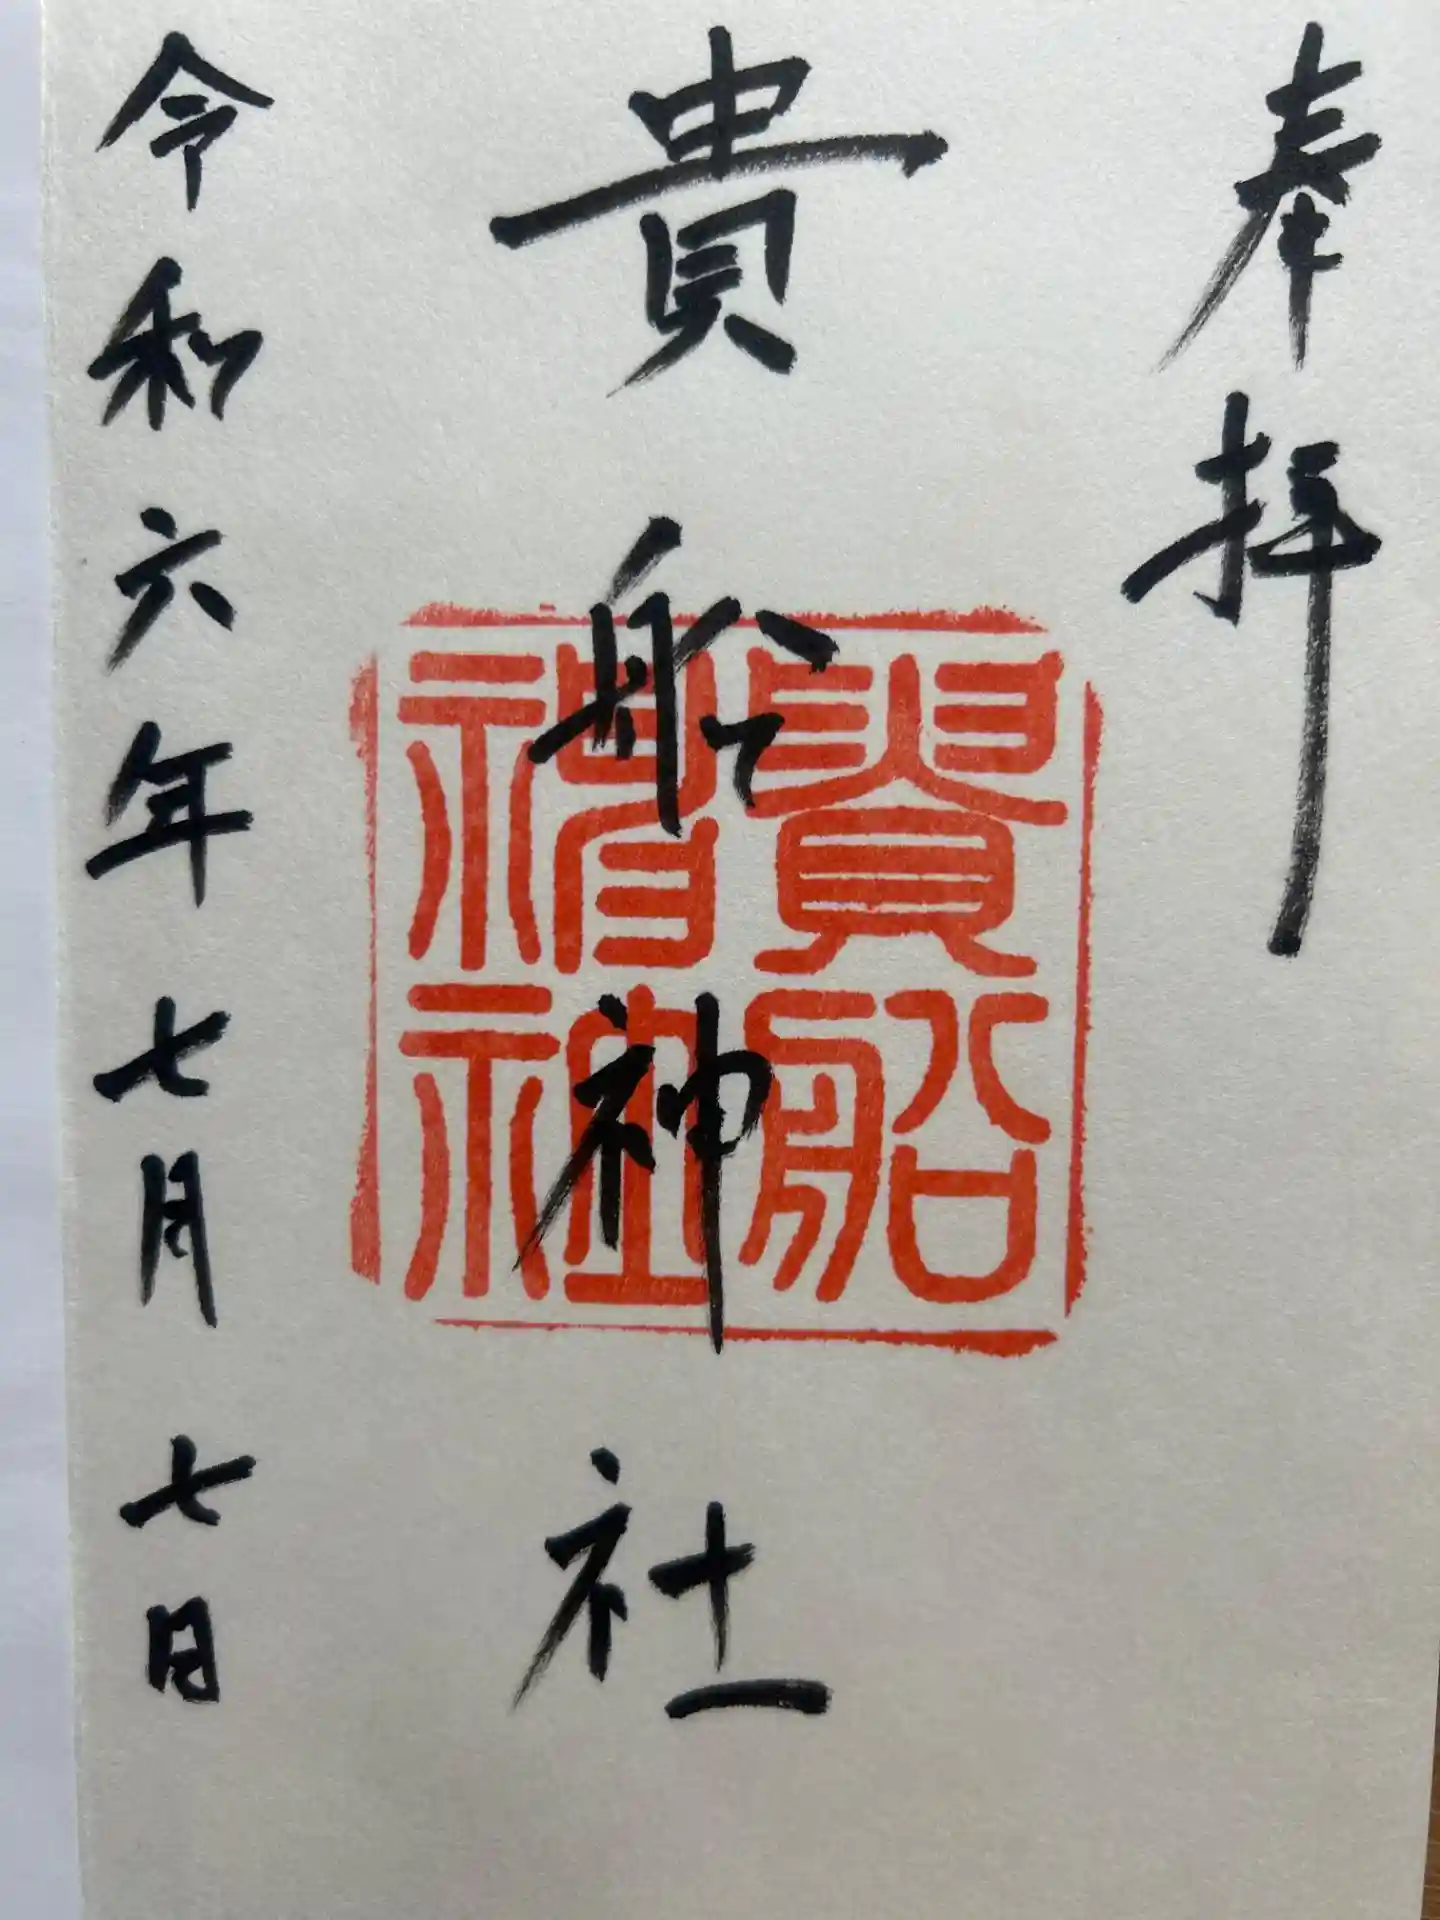 奉拝
貴船神社
貴船神社
令和六年七月七日